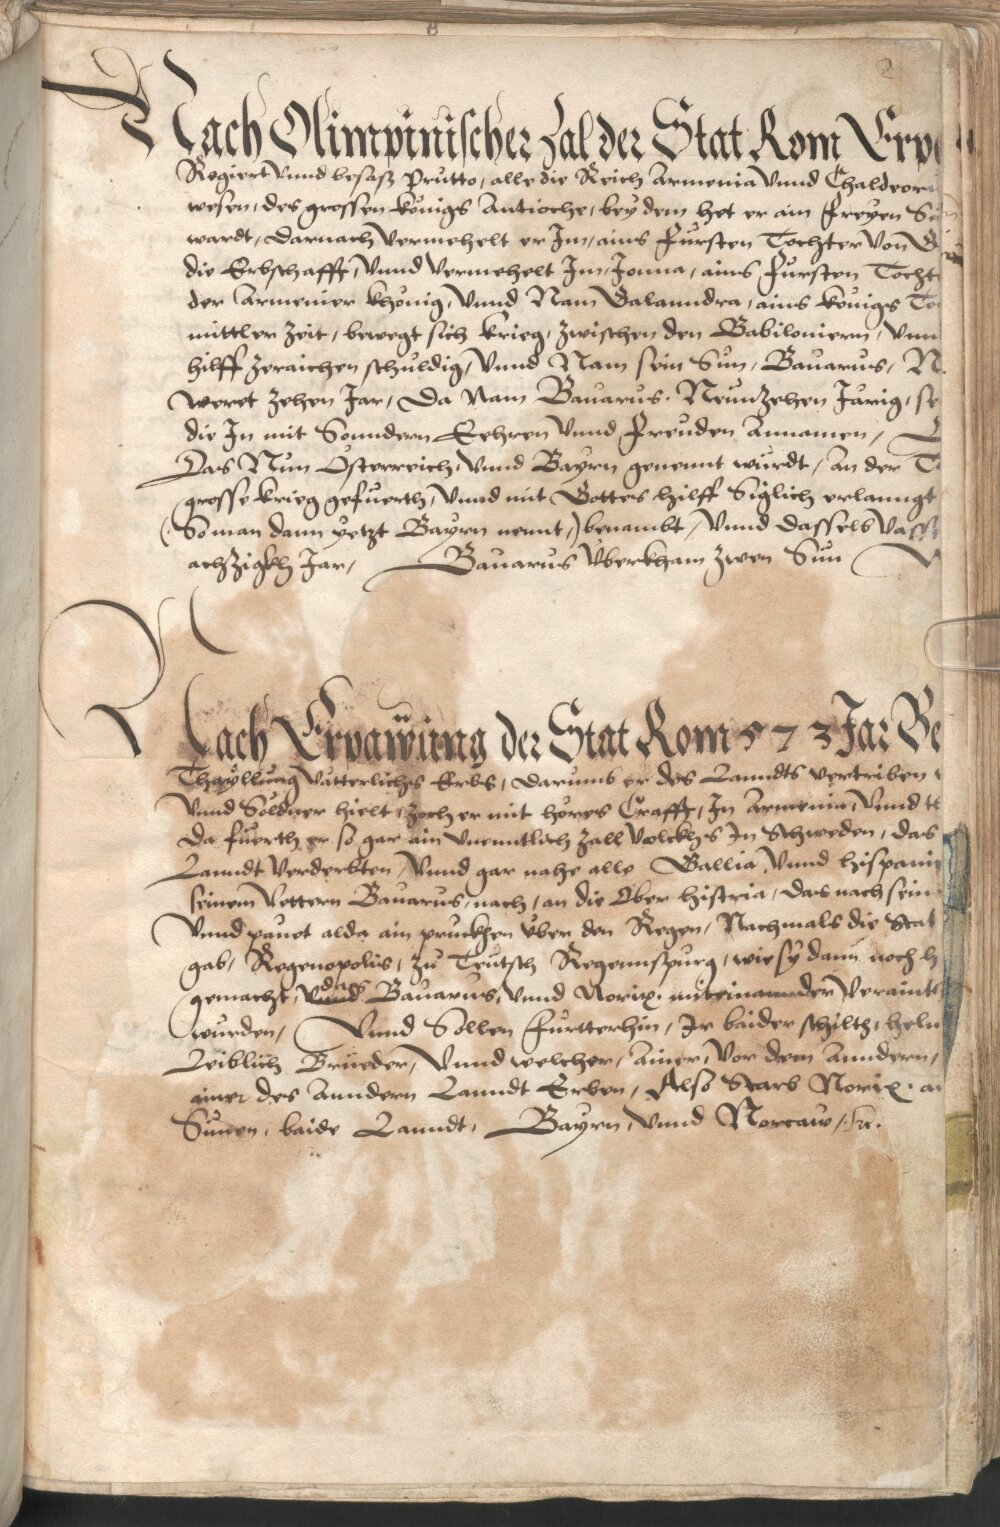 2
Nach Olimpinischer Zal der Stat Rom Erp
Regiert Vnnd besasz Prutto, alle die Reich Armenia Vnnd Chaldeor
wesen, des grossen königs Antioche, bey dem het er ain Freyen Su
wardt, Darnach Vermehelt er Jm, ains Fürsten Tochter Von
die Erbschafft, Vnnd Vermehelt Jm, Jonna, ains Fürsten Tocht
der Armenier khönig, Vnnd Nam Salanndra, ains königs To
mittler Zeit, bewegt sich krieg, Zwischen den Babiloniern, Vnn
hilff Zeraichen schuldig, Vnnd Nam sein Sun, Bauarus, N
Weret Zehen Jar, Da Nam Bauarus, Neunzehen Järig, se
die Jn mit Sonndern Eehren Vnnd Freuden Annamen,
Das Nun Österreich, Vnnd Bayrn genennt würdt, An der
grosse krieg gefuerth, Vnnd mit Gottes hilff Siglich erlanngt
(So man dann yetzt Bayrn nennt,) benambt, Vnnd dasselb
achZigkh Jar, Bauarus Vberkham Zwen Sun
Nach Erpawung der Stat Rom 573 Jar Be
Thayllung Vatterlichs Erbs, Darumb er des Lanndts Vertriben
Vnnd Söldner hielt, Zoch er mit höres Crafft, Jn Armenia, Vnnd
Da fuerth er so gar ain Vnenntlich Zall Volckhs Jn Schweden, das
Lanndt Verderbten, Vnnd gar nahe alle Gallia, Vnnd Hispani
seinem Vettern Bauarus, nach, an die Ober Histria, Das nach sein
Vnnd pauet alda ain pruckhen Vber den Regen, Nachmals die Stat
gab, Regenopolis, Zu Teutsch Regennspurg, wie sy dann noch h
gemacht, Vnnd das Bauarus, Vnnd Norix, miteinannder Verainte
wurden, Vnnd Sollen Furtterhin, Jr baider schilth, helm
Leiblich Brüeder, Vnnd welcher, Ainer, Vor dem Anndern,
ainer des Anndern Lanndt Erben, Also Starb Norix, a
Sunen, baide Lanndt, Bayrn, Vnnd Norcaw, etc.